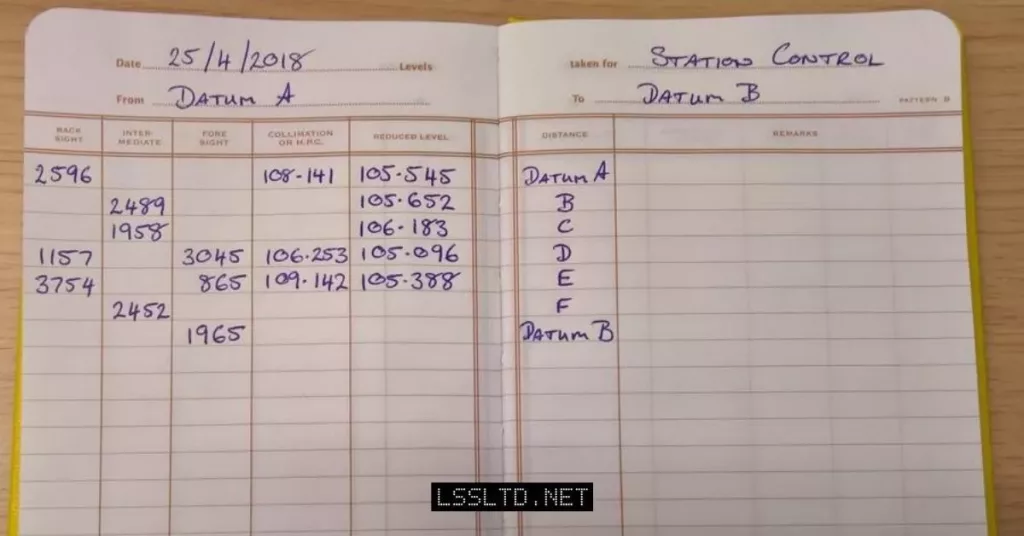 Date 25/4/2018 Levels taken for STATION CONTROL
From DATUM A To DATUM B PATTERN B
BACK SIGHT INTER-MEDIATE FORE SIGHT COLLIMATION OR H.P.C. REDUCED LEVEL DISTANCE REMARKS
2596 108.141 105.545 DATUM A
2489 105.652 B
1958 106.183 C
1157 3045 106.253 105.096 D
3754 865 109.142 105.388 E
2452 F
1965 DATUM B
LSSLTD.NET